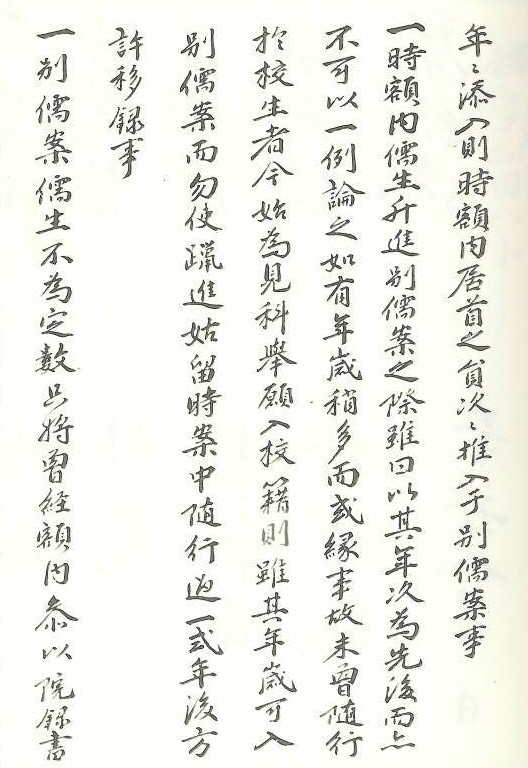 年〻添入則時額內居首之負次〻推入于别儒案事
一時額內儒生升進别儒案之際雖曰以其年次為先後而亦
不可以一例論之如有年歲稍多而或緣事故未曾隨行
於校生者今始為見科舉願入校籍則雖其年歲可入
别儒案而勿使躐進姑留時案中隨行過一式年後方
許移錄事
一别儒案儒生不為定數只將曾經額內參以院錄書